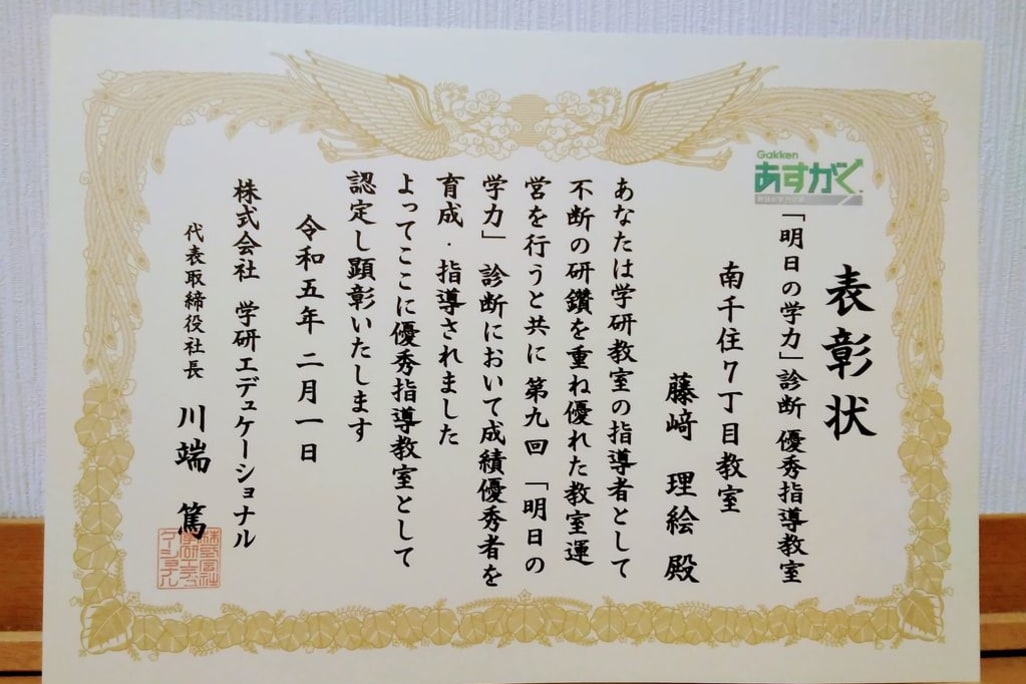 表彰状
Gakken
あすがく
「明日の学力」診断 優秀指導教室
南千住７丁目教室
藤﨑 理絵 殿
あなたは学研教室の指導者として
不断の研鑽を重ね優れた教室運
営を行うと共に 第九回 「明日の
学力」 診断において成績優秀者を
育成・指導されました
よってここに優秀指導教室として
認定し顕彰いたします
令和五年 二月一日
株式会社 学研エデュケーショナル
代表取締役社長 川端 篤
株式会社
学研エデュ
ケーショナル